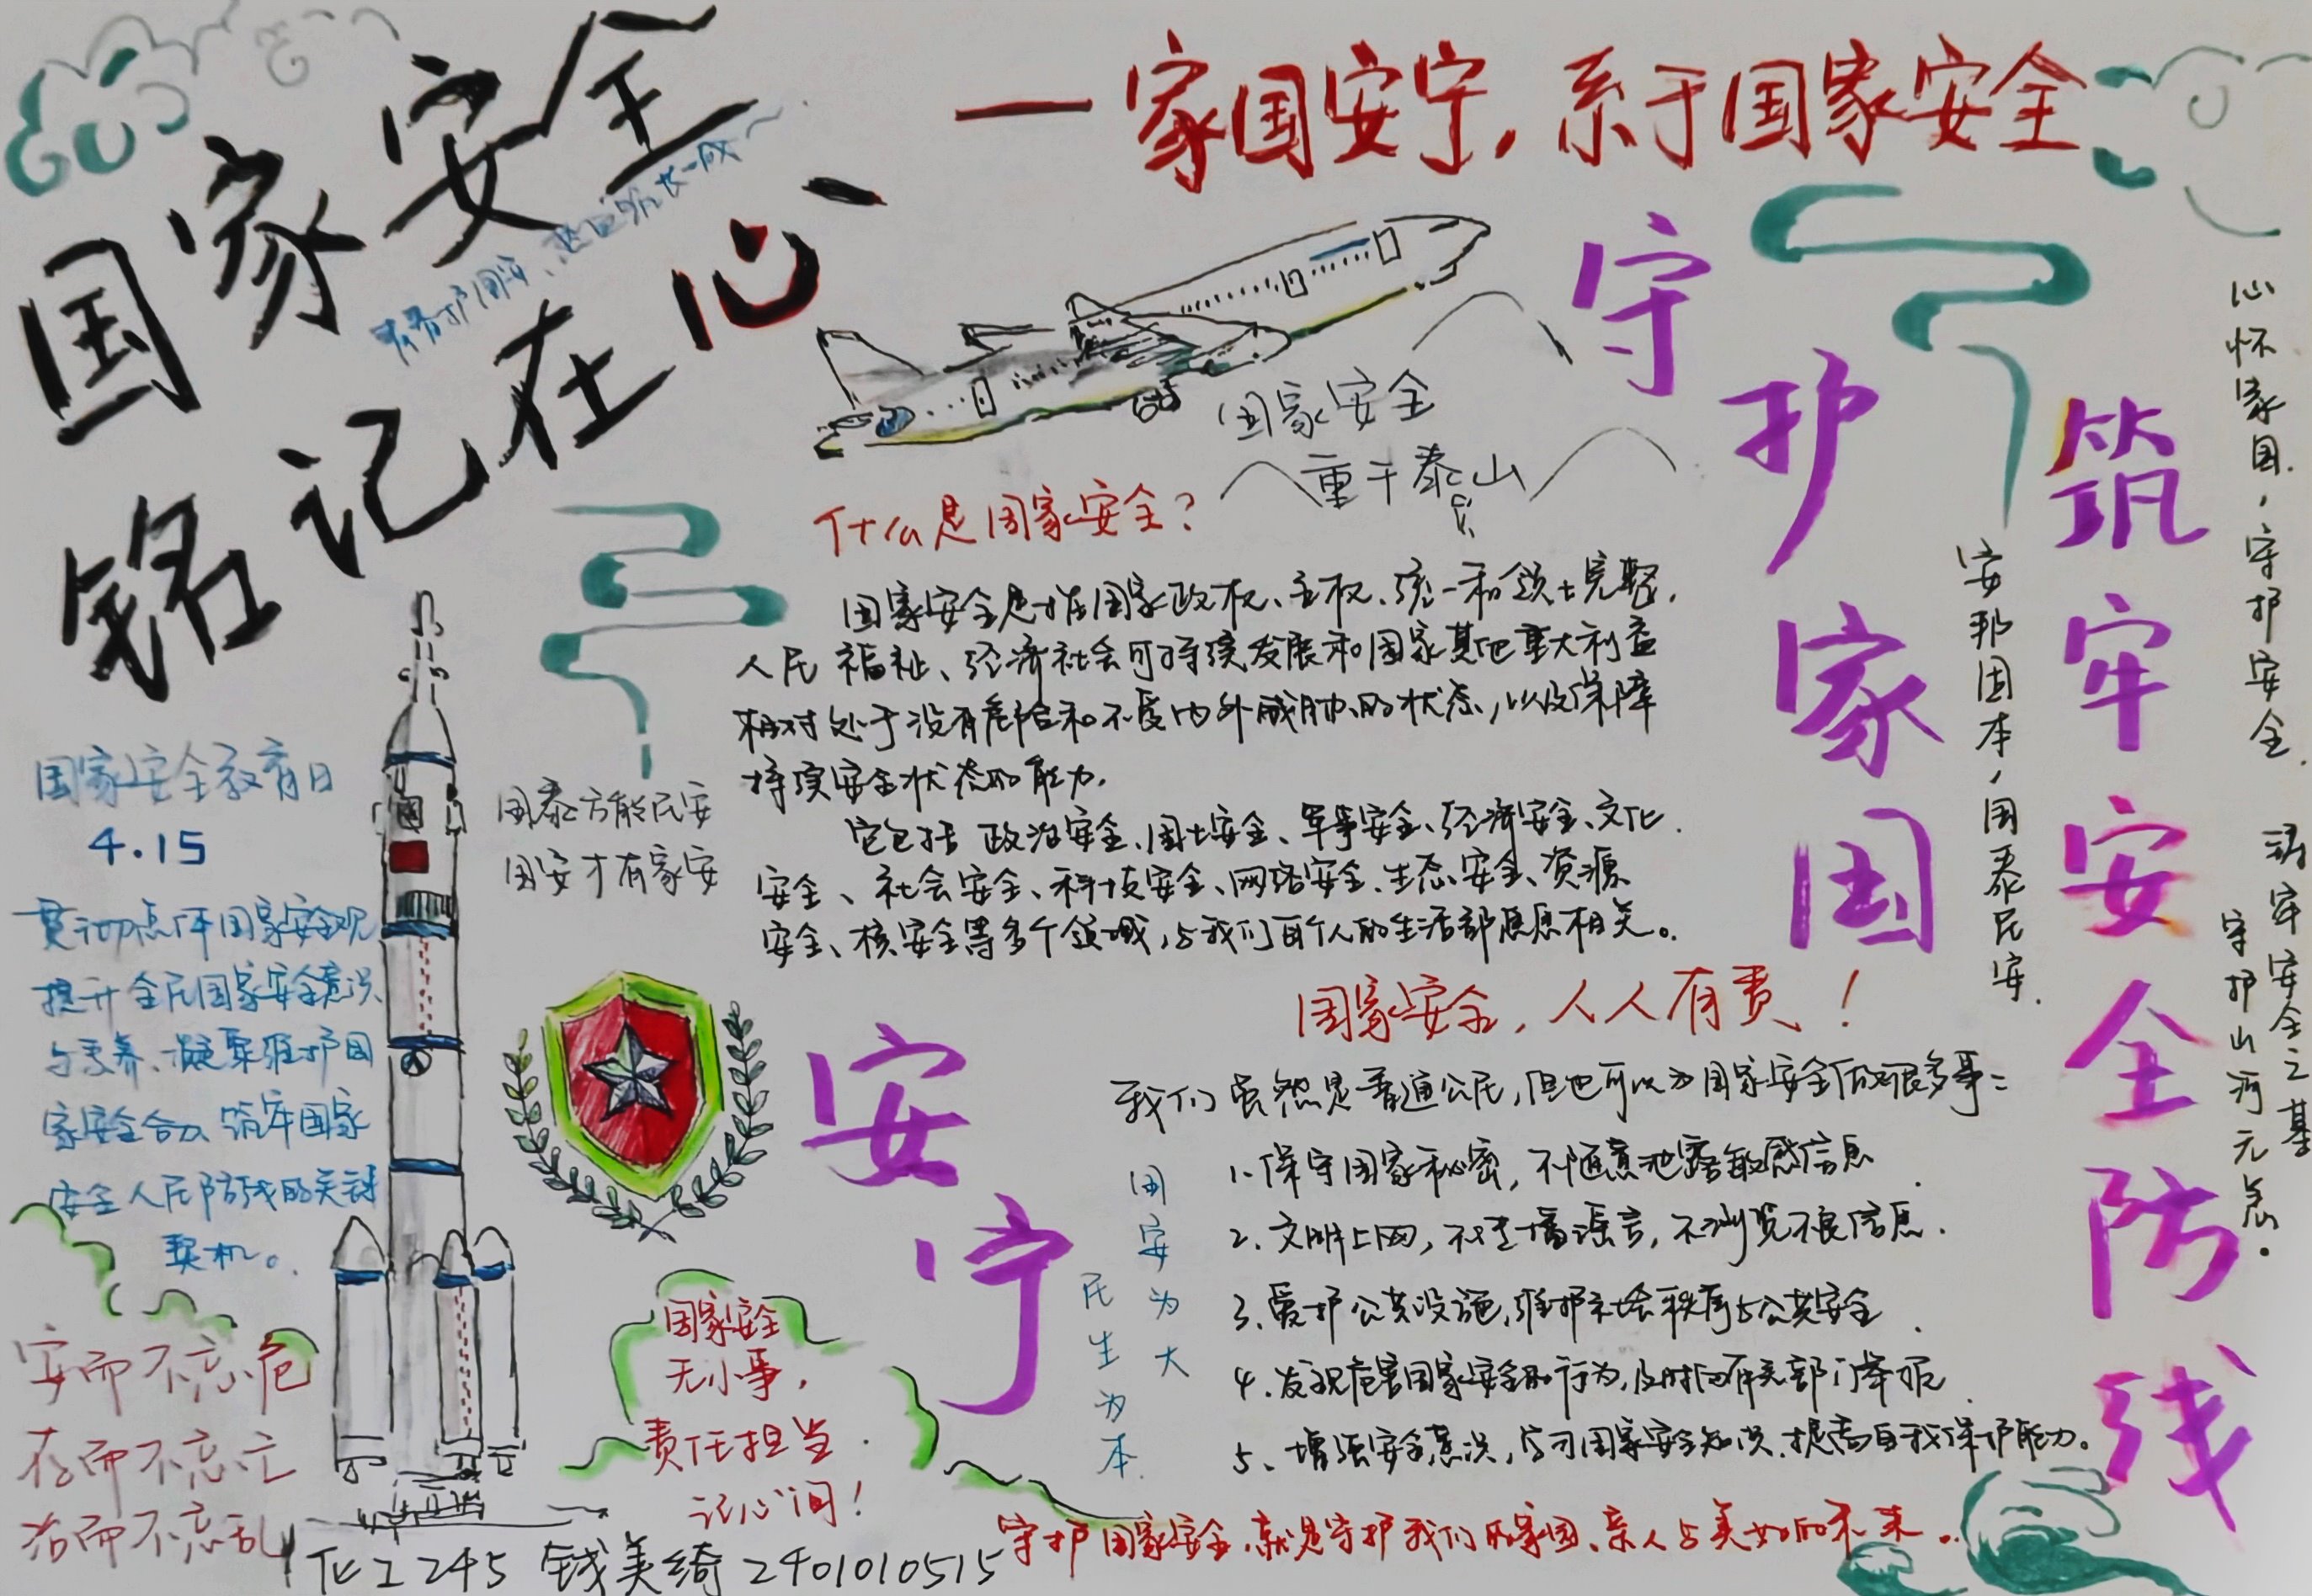 国家安全
铭记在心
一家国安宁，系于国家安全
国家安全
重于泰山
什么是国家安全？
国家安全是指国家政权、主权、统一和领土完整，
人民福祉、经济社会可持续发展和国家其他重大利益
相对处于没有危险和不受内外威胁的状态，以及保障
持续安全状态的能力.
它包括政治安全、国土安全、军事安全、经济安全、文化
安全、社会安全、科技安全、网络安全、生态安全、资源
安全、核安全等多个领域，与我们每个人的生活都息息相关。
国家安全教育日
4.15
贯彻总体国家安全观
提升全民国家安全意识
与素养、凝聚维护国
家安全合力、筑牢国家
安全人民防线的关键
契机。
国泰方能民安
国安才有家安
安而不忘危
存而不忘亡
治而不忘乱
国家安全
无小事，
责任担当
记心间！
守护家国
安宁
筑牢安全防线
安邦固本，国泰民安.
心怀家国，守护安全.
筑牢安全之基
守护山河无恙.
国家安全，人人有责！
我们虽然是普通公民，但也可以为国家安全做很多事：
1.保守国家秘密，不随意泄露敏感信息
2.文明上网，不传播谣言，不浏览不良信息.
3.爱护公共设施，维护社会秩序与公共安全.
4.发现危害国家安全的行为，及时向有关部门举报.
5、增强安全意识，学习国家安全知识，提高自我保护能力。
国安为大
民生为本.
守护国家安全，就是守护我们的家园、亲人与美好的未来。
化工245 钱美绮 2401010515